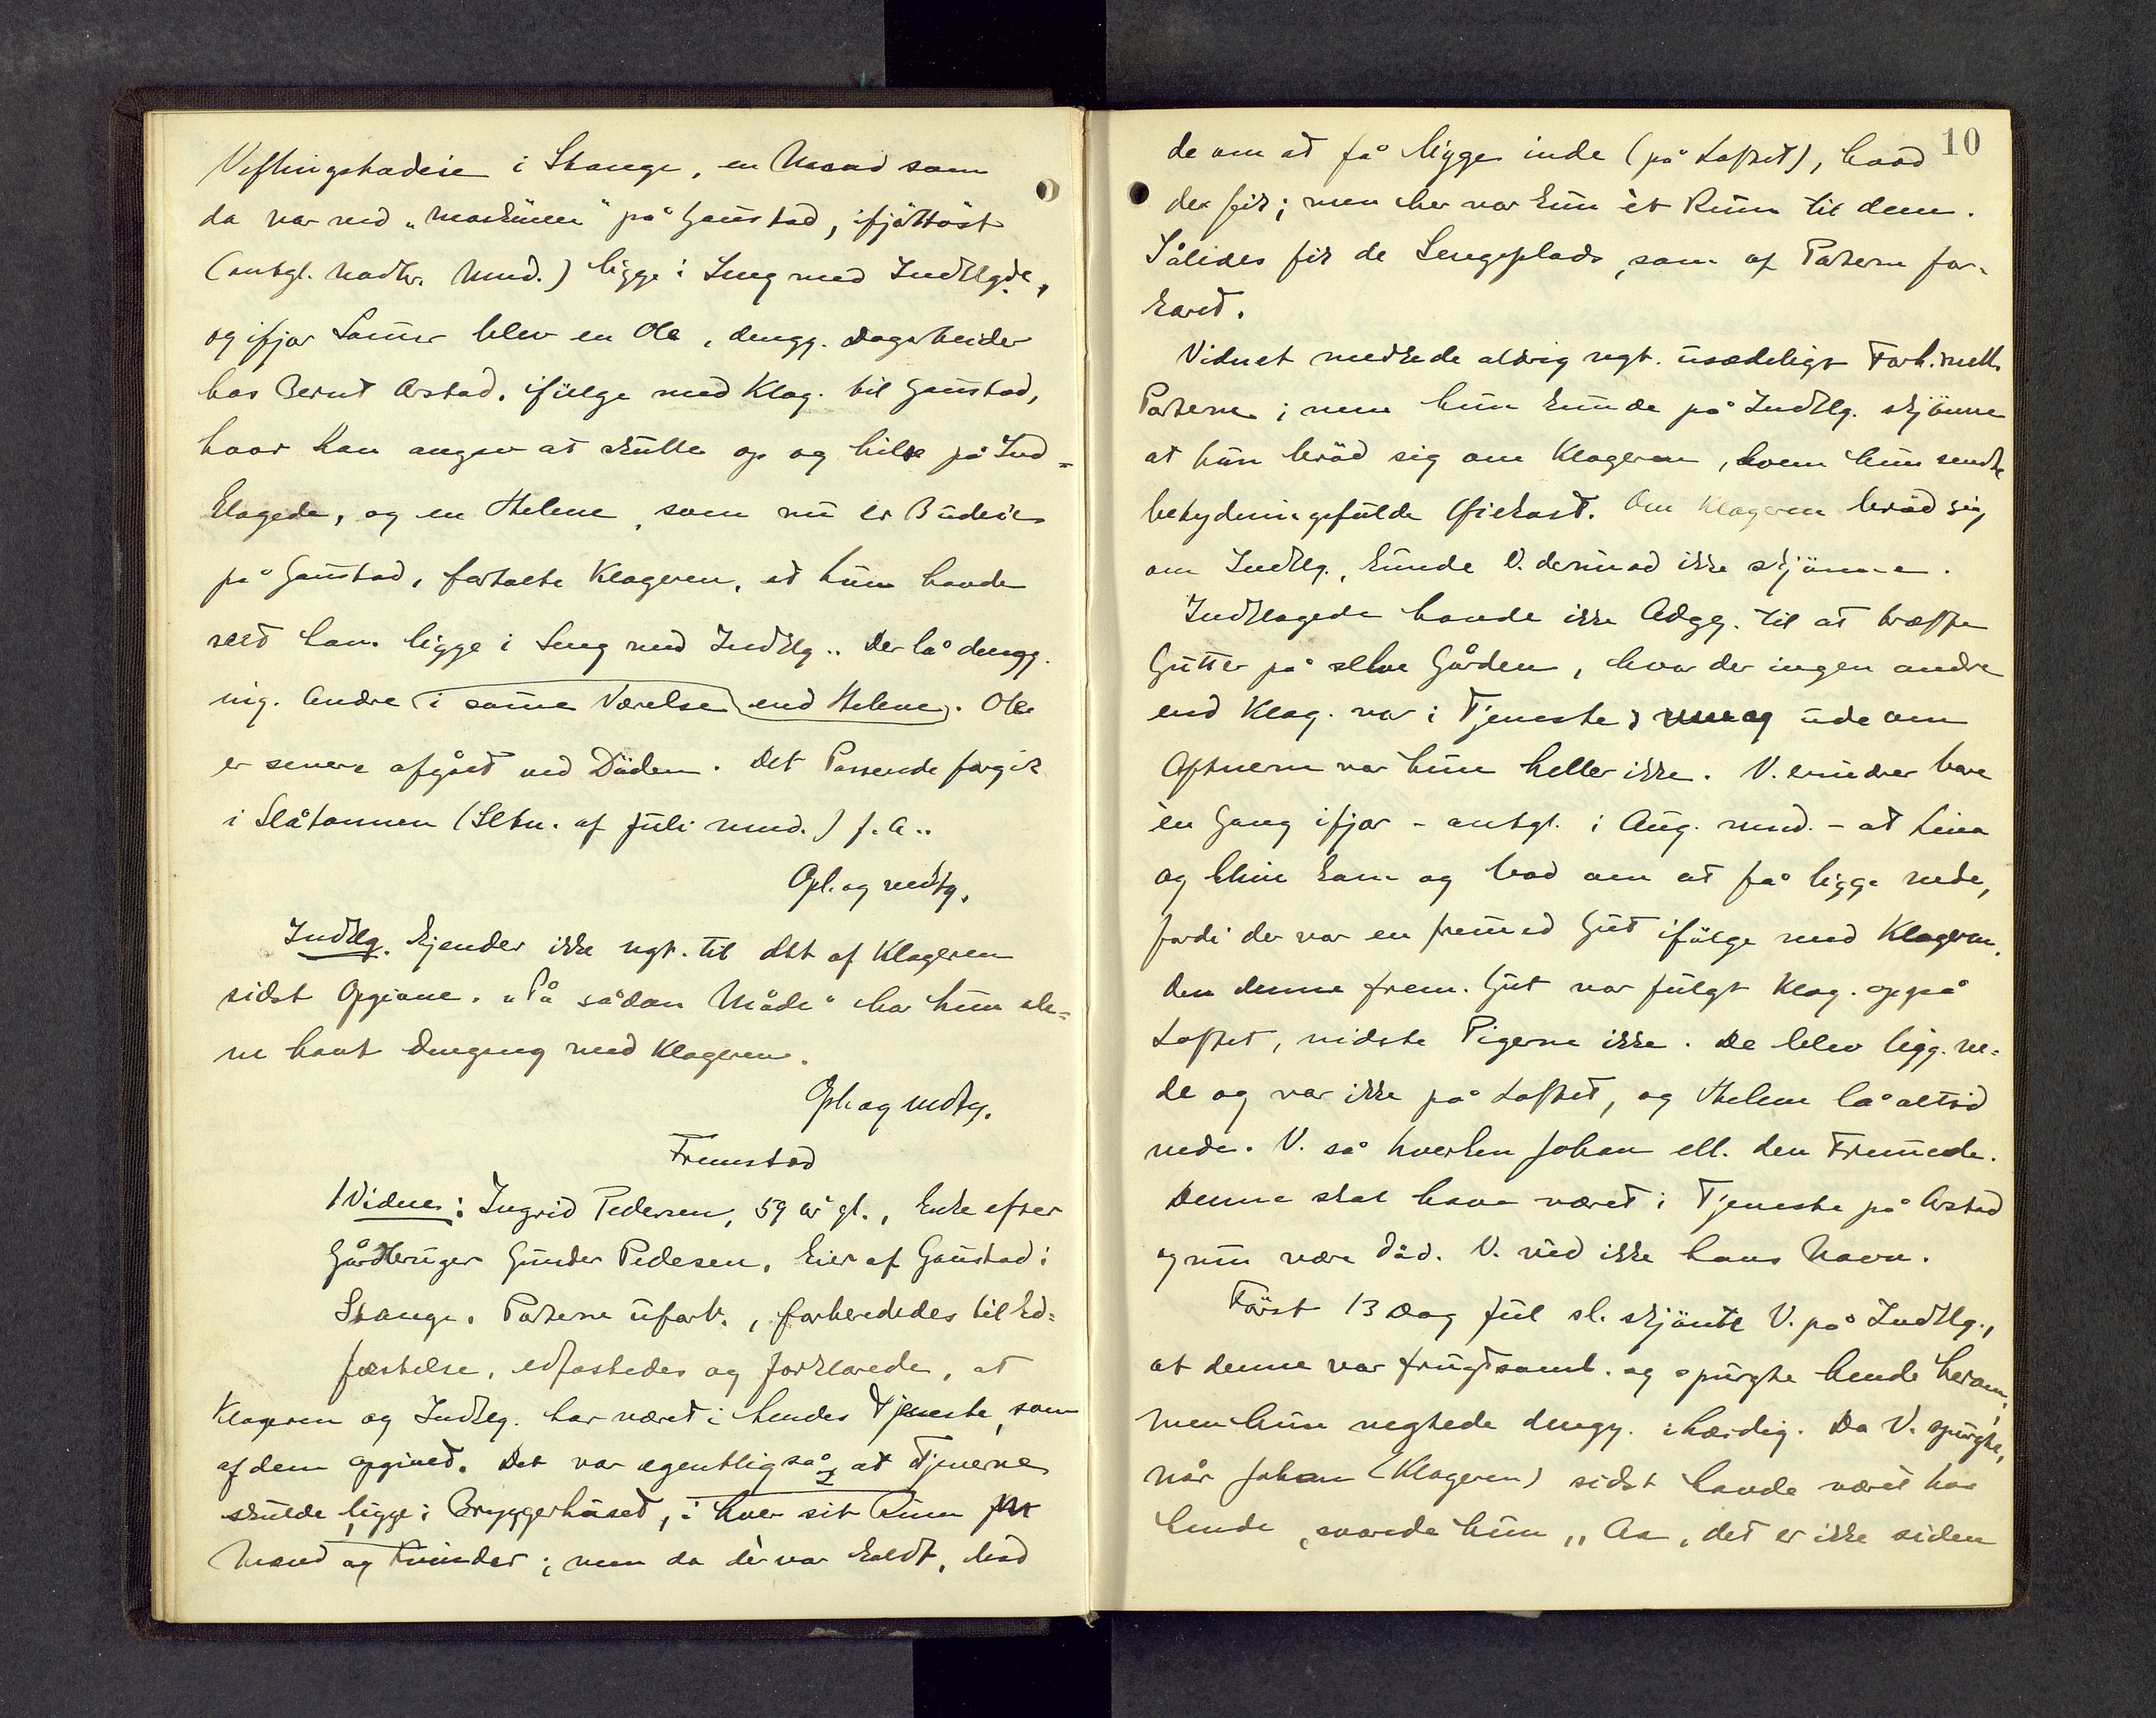 i Stange, en Mand som
da var ved "Maskinen" på Gaustad, ifjörhöst
(antgl. Novbr. Mnd.) ligge i Seng med Indklgde,
og ifjor Somer blev en Ole, dengg. Dagarbeider
hos Bernt Arstad, ifölge med Klag. til Gaustad,
hvor han angav at skulle op og hilse på Ind=
klagede, og en Helene, som nu er Budeie
på Gaustad, fortalte Klageren, at hun havde
seet ham ligge i Seng med Indklg.. Der lå dengg.
ing. Andre i same Værelse end Helene. Ole
er senere afgået ved Döden. Det Passerede forgik
i Slåtonnen (Slutn. af Juli mnd.) f. A..
Opl. og vedtg.
Indklg. kjender ikke ngt. til det af Klageren
sidst Opgivne. "På sådan Måde" har hun ale=
ne havt Omgang med Klageren.
Opl. og vedtg.
Fremstod
1 Vidne: Ingrid Pedersen, 59 år gl., Enke efter
Gårdbruger Gunder Pedersen, Eier af Gaustad i
Stange. Parterne ubesl., forberededes til Ed=
fæstelse, edfæstedes og forklarede, at
Klageren og Indklg. har været i hendes Tjeneste, som
af dem opgivet. Det var egentlig så, at Tjenerne
skulde ligge i Bryggerhuset, i hver sit Rum
Mænd og Kvinder; men da dèr var koldt, bad
10
de om at få ligge inde (på Loftet), hvad
de fik; men her var kun èt Rum til dem.
Således fik de Sengeplads, som af Parterne for=
klaret.
Vidnet mærkede aldrig ngt. usædeligt Forh. mell.
Parterne; men hun kunde på Indklg. skjönne
at hun bröd sig om Klageren, hvem hun sendte
betydningsfulde Öiekast. Om Klageren bröd sig
om Indklg., kunde V. derimod ikke skjönne.
Indklagede havde ikke Adgg. til at træffe
Gutter på selve Gården, hvor der ingen andre
end Klag. var i Tjeneste; og ude om
Aftnerne var hun heller ikke. V. erindrer bare
èn Gang ifjor - antgl. i Aug. mnd. - at Lina
og Eline kom og bad om at få ligge nede,
fordi der var en fremed Gut ifölge med Klageren.
Om denne frem. Gut var fulgt Klag. op på
Loftet, vidste Pigerne ikke. De blev ligg. ne=
de og var ikke på Loftet, og Helene lå altid
nede. V. så hverken Johan ell. den Fremede.
Denne skal have været i Tjeneste på Arstad
og nu være död. V. ved ikke hans Navn.
Först 13 Dag Jul sl. skjönte V. på Indklg.,
at denne var frugtsoml. og spurgte hende herom,
men hun negtede dengg. ihærdig. Da V. spurgte,
når Johan (Klageren) sidst havde været hos
hende, svarede hun "Aa, det er ikke siden